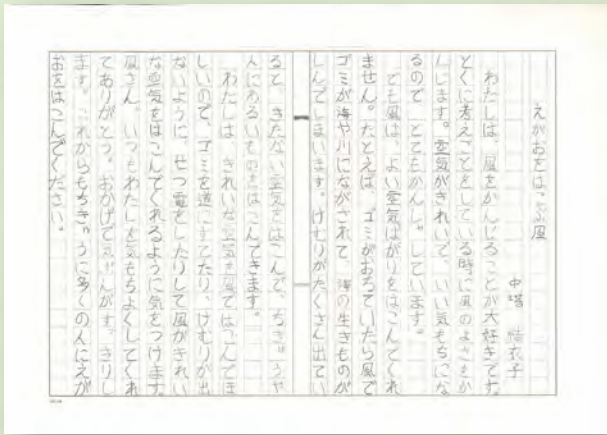 えがおをはこぶ風
中塚 結衣子
わたしは、風をかんじることが大好きです。
とくに考えごとをしている時に風のよさをか
んじます。空気がきれいで、いい気もちにな
るので、とてもかんしゃしています。
でも風は、よい空気ばかりをはこんでくれ
ません。たとえば、ゴミがおちていたら風で
ゴミが海や川にながされて、海の生きものが
しんでしまいます。けむりがたくさん出てい
ると、きたない空気をはこんで、ちきゅうや
人にわるいものをはこんできます。
わたしは、きれいな空気を風ではこんでほ
しいので、ゴミを道にすてたり、けむりが出
ないように、せつ電をしたりして風がきれい
な空気をはこんでくれるように気をつけます。
風さん、いつもわたしを気もちよくしてくれ
てありがとう。おかげで元気がでます。
ます。これからもちきゅうに多くの人にえが
おをはこんでください。